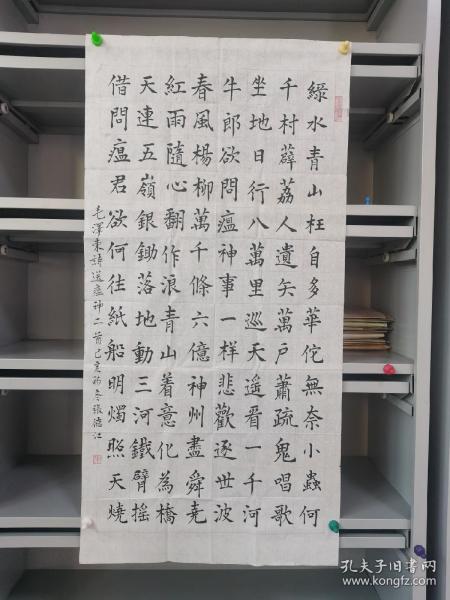 緑水青山枉自多華佗無奈小蟲何
千村薜荔人遺矢萬戶蕭疏鬼唱歌
坐地日行八萬里巡天遥看一千河
牛郎欲問瘟神事一样悲歡逐世波
春風楊柳萬千條六億神州盡舜堯
紅雨隨心翻作浪青山着意化為橋
天連五嶺銀鋤落地動三河鐵臂摇
借問瘟君欲何往紙船明燭照天燒
毛澤東詩送瘟神二首己亥初冬張德江
孔夫子旧书网
www.kongfz.com